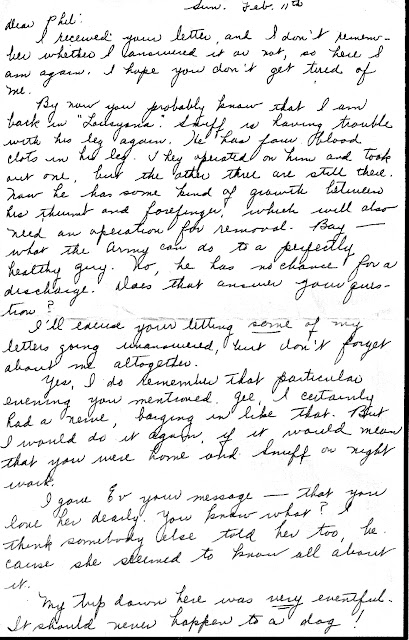 Sun. Feb. 11th
Dear Phil:
I received your letter, and I don't remem-
ber whether I answered it or not, so here I
am again. I hope you don't get tired of
me.
By now you probably know that I am
back in "Lousyana". Snuff is having trouble
with his leg again. He has four blood
clots in his leg. They operated on him and took
out one, but the other three are still there.
Now he has some kind of growth between
his thumb and forefinger, which will also
need an operation for removal. Boy —
what the Army can do to a perfectly
healthy guy. No, he has no chance for a
discharge. Does that answer your ques-
tion?
I'll excuse your letting some of my
letters going unanswered, but don't forget
about me altogether.
Yes, I do remember that particular
evening you mentioned. Gee, I certainly
had a nerve, barging in like that. But
I would do it again, if it would mean
that you were home and Snuff on night
work.
I gave Ev your message — that you
love her dearly. You know what? I
think somebody else told her too, be-
cause she seemed to know all about
it.
My trip down here was very eventful.
It should never happen to a dog!